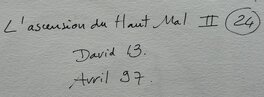 L'ascension du Haut Mal II 24
David B.
Avril 97.